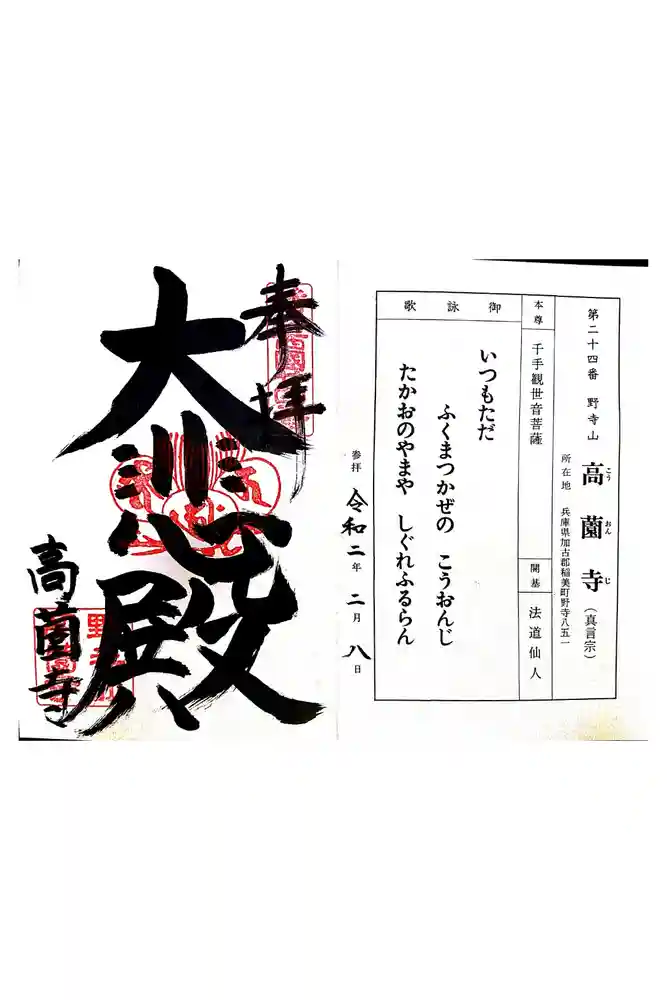 第二十四番 野寺山 高薗寺(真言宗)
こう おん じ
所在地 兵庫県加古郡稲美町野寺八五一
本尊 千手観世音菩薩
開基 法道仙人
御詠歌
いつもただ
ふくまつかぜの こうおんじ
たかおのやまや しぐれふるらん
参拝 令和二年 二月 八日
奉拝
大悲殿
高薗寺